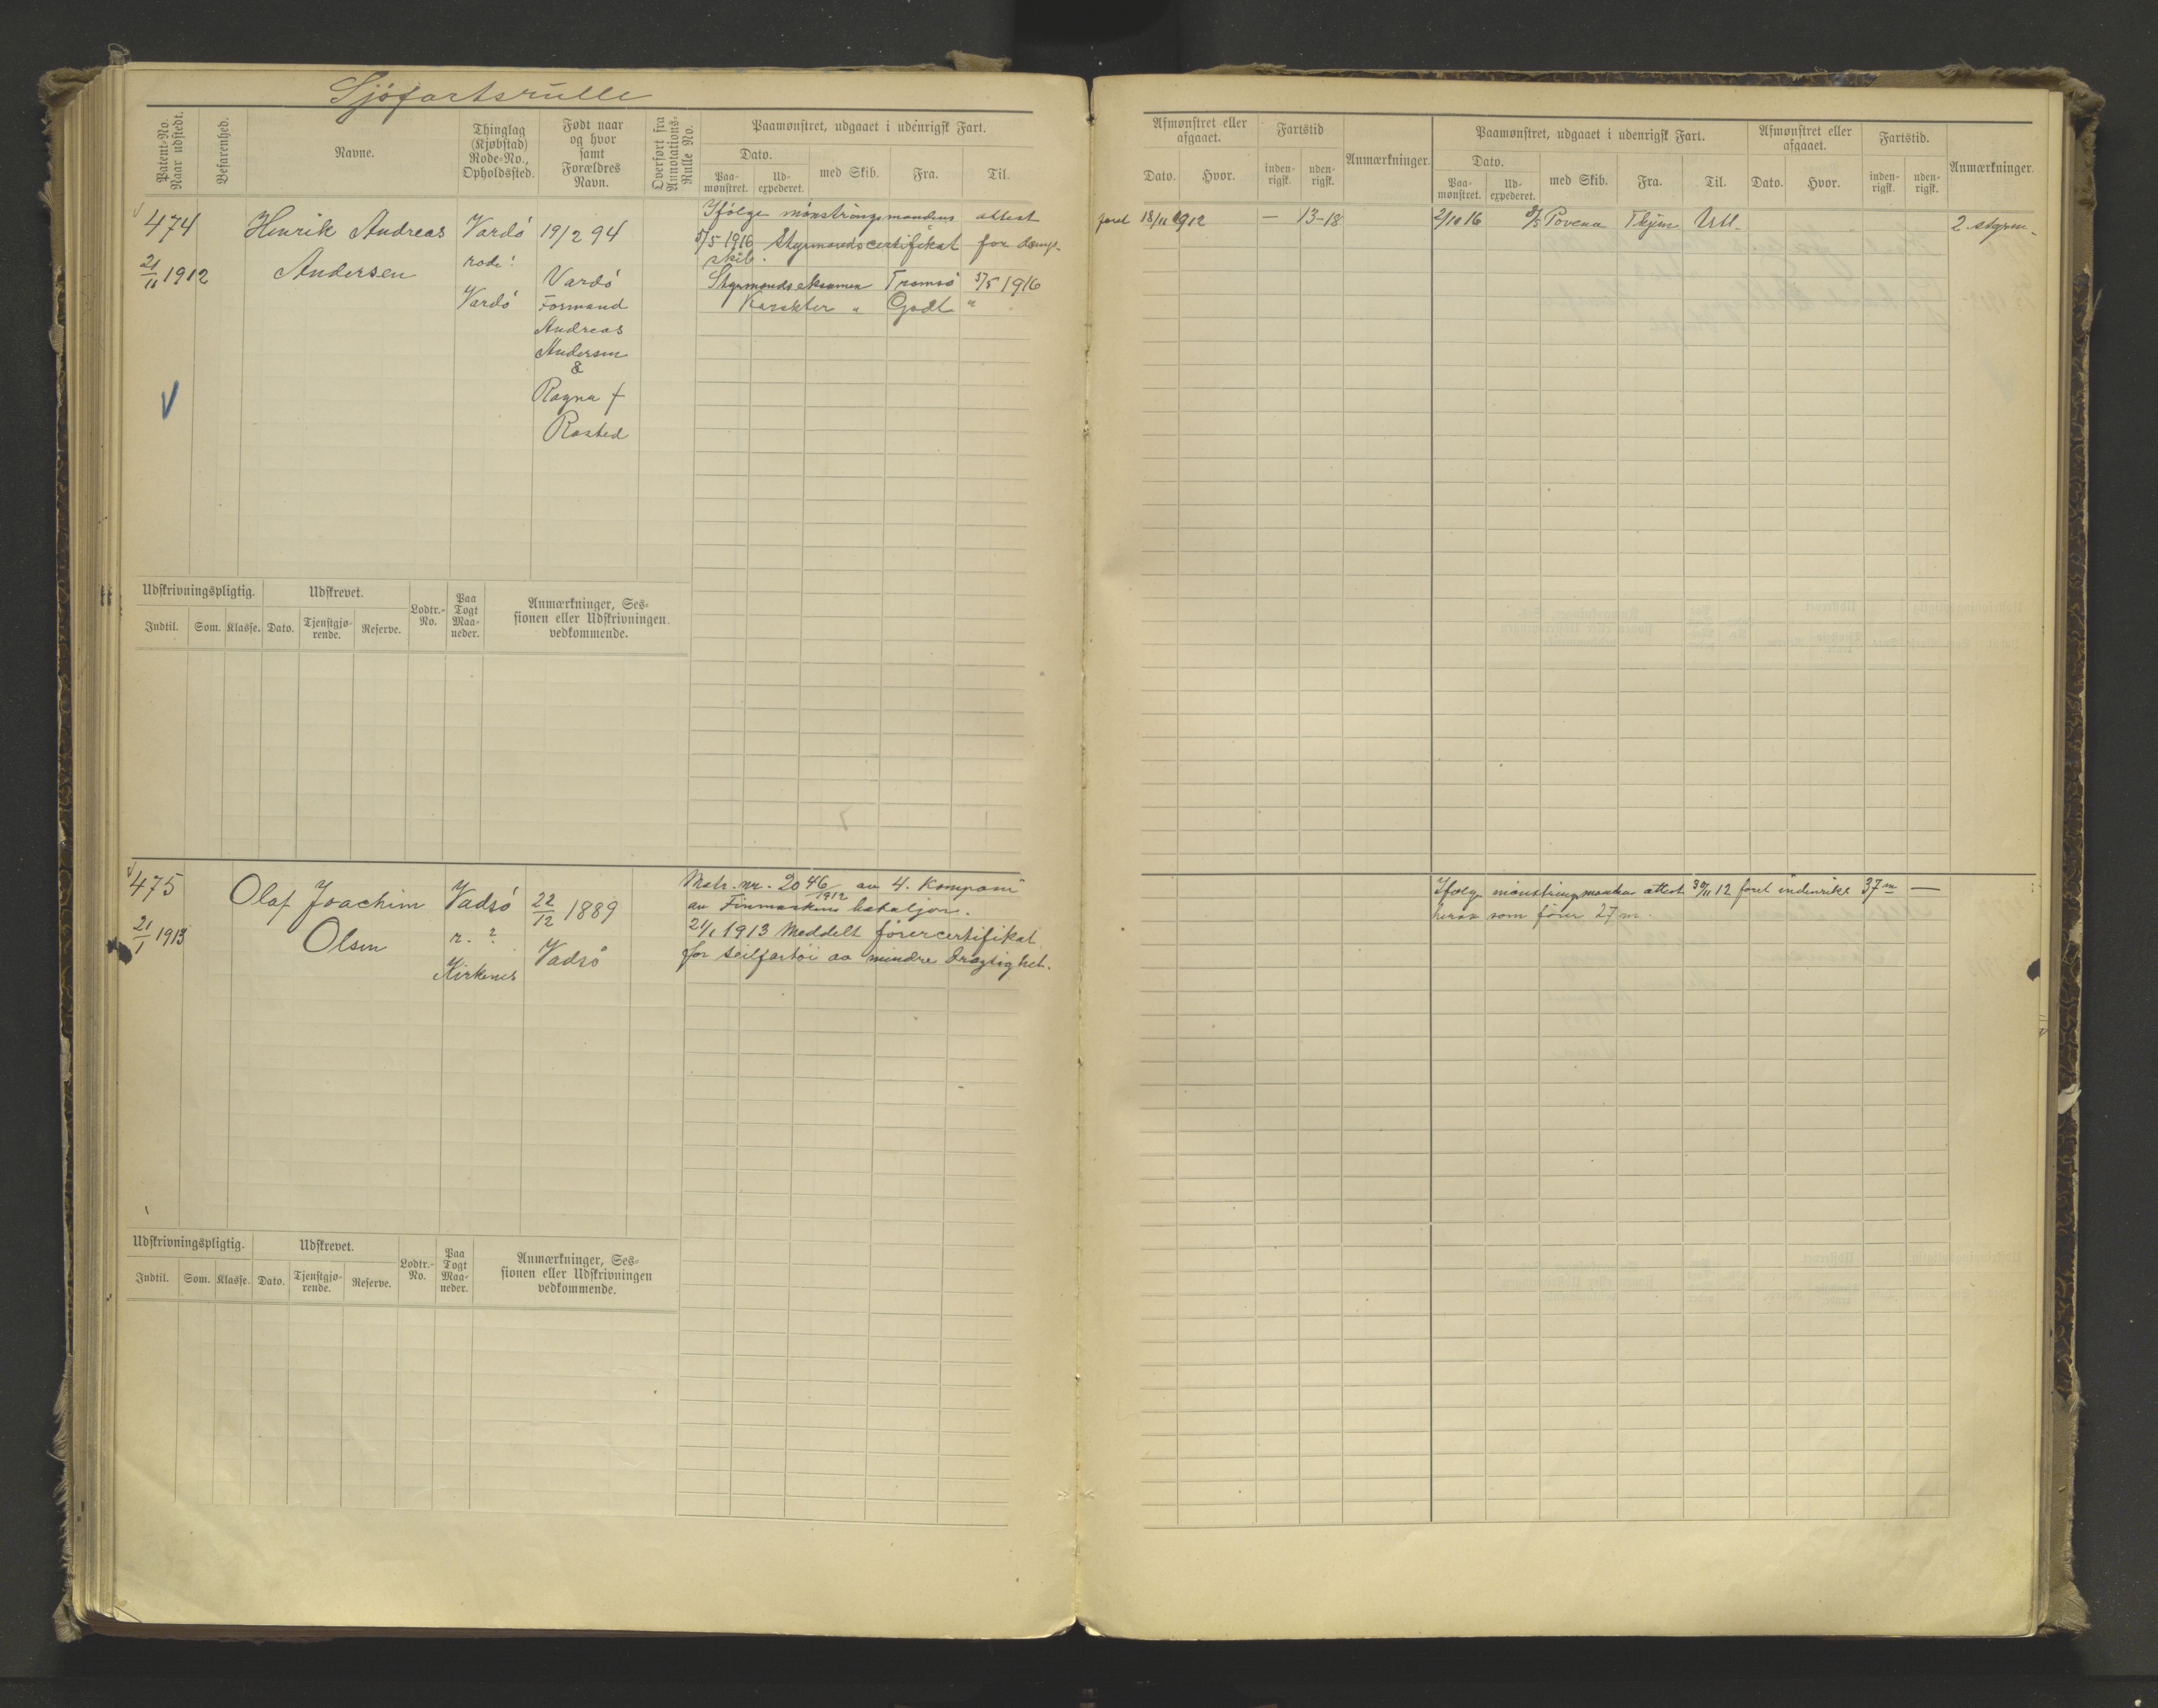 Sjøfartsrulle
Patent-No. Naar udstedt.
Befarenhed.
Navne.
Thinglag (Kjøbstad) Rode-No., Opholdssted.
Født naar og hvor samt Forældres Navn.
Overført fra Annotations-Rulle No.
Paamønstret, udgaaet i udenrigsk Fart.
Dato.
Paa-mønstret.
Ud-expederet.
med Skib.
Fra.
Til.
474
21/11 1912
Henrik Andreas
Andersen
Vardø
rode:
Vardø
19/2 94
Vardø
Formand
Andreas
Andersen
&
Ragna f
Rasted
Ifølge mønstringsmandens attest
5/5 1916 Styrmandscertifikat for damp-
skib.
Styrmandseksamen Tromsø 5/5 1916
Karakter " Godt "
Udskrivningspligtig.
Udskrevet.
Indtil.
Som.
Klasse.
Dato.
Tjenstgjø-rende.
Reserve.
Lodtr.-No.
Paa Togt Maa-neder.
Anmærkninger, Ses-sionen eller Udskrivningen vedkommende.
475
21/1 1913
Olaf Joachim
Olsen
Vadsø
r. ?
Kirkenes
22/12 1889
Vadsø
Matr. nr. 20 46/1912 av 4. Kompani
av Finmarkens bataljon.
21/1 1913 Meddelt førercertifikat
for seilfartøi aa mindre drægtighet.
Udskrivningspligtig.
Udskrevet.
Indtil.
Som.
Klasse.
Dato.
Tjenstgjø-rende.
Reserve.
Lodtr.-No.
Paa Togt Maa-neder.
Anmærkninger, Ses-sionen eller Udskrivningen vedkommende.
Afmønstret eller afgaaet.
Fartstid
Dato.
Hvor.
inden-rigsk.
uden-rigsk.
Anmærkninger.
Paamønstret, udgaaet i udenrigsk Fart.
Dato.
Paa-mønstret.
Ud-expederet.
med Skib.
Fra.
Til.
Afmønstret eller afgaaet.
Dato.
Hvor.
Fartstid.
inden-rigsk.
uden-rigsk.
Anmærkninger.
faret 18/11 1912 — 13-18
2/10 16 Povena Thjem Utl. 2. styrm.
Ifølge mønstringsmandens attest 30/11 12 faret indenriks 37 m —
herav som fører 27 m.